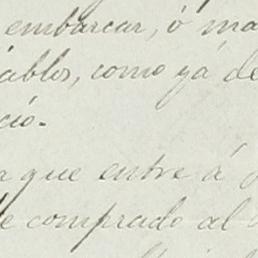 embarcar, ó ma
ablos, como ya de
ció.
a que entre á
de comprado al